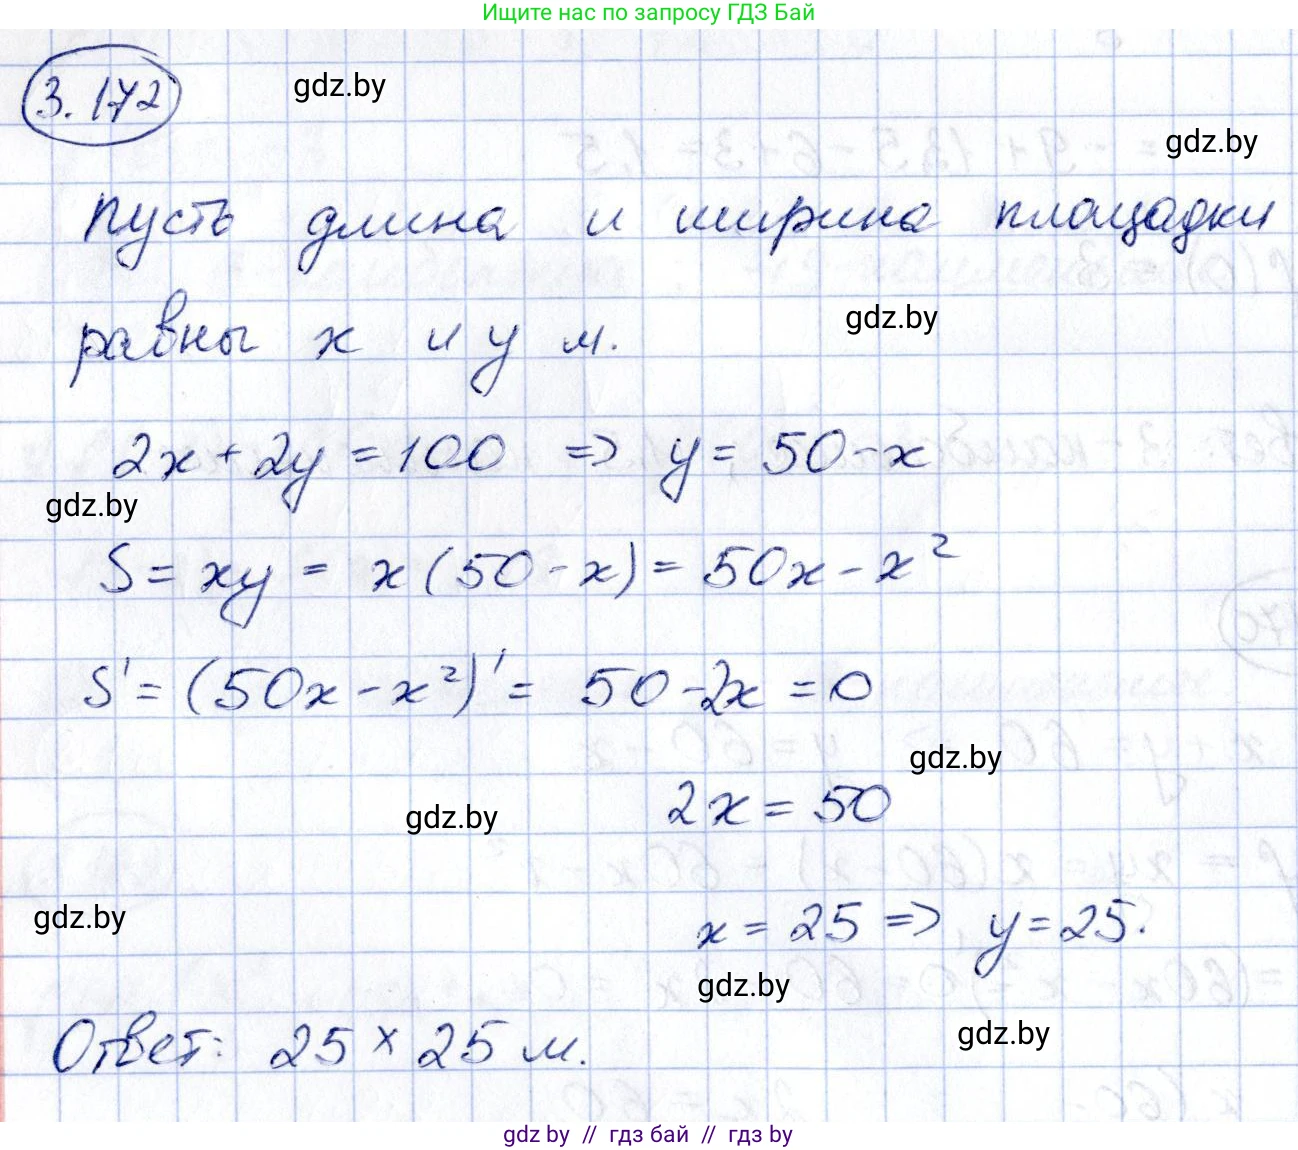 Ищите нас по запросу ГДЗ Бай
3.172
gdz.by
gdz.by
пусть длина и ширина площадки
равны x и y м.
gdz.by
2x + 2y = 100 => y = 50 - x
gdz.by
S = xy = x(50 - x) = 50x - x²
S' = (50x - x²)' = 50 - 2x = 0
gdz.by
2x = 50
gdz.by
gdz.by
x = 25 => y = 25.
gdz.by
gdz.by
Ответ: 25 × 25 м.
gdz.by // гдз бай // гдз by